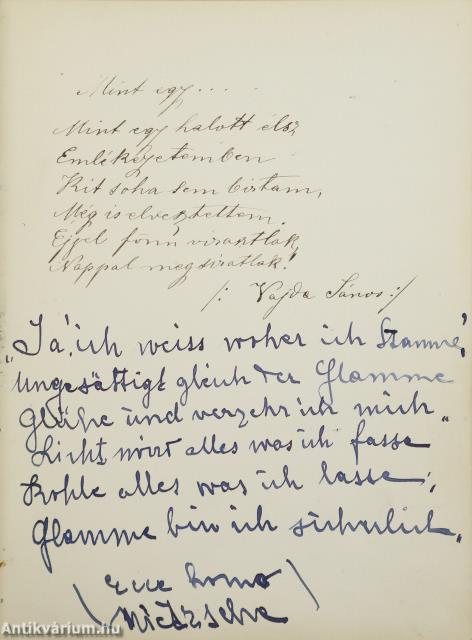 Mint egy....
Mint egy halott élsz
Emlékezetemben
Kit soha sem birtam,
Még is elvesztettem.
Éjjel fönn virasztlak,
Nappal megsiratlak!
/: Vajda János :/
"Ja! ich weiss woher ich Stamme,
Ungesättigt gleich der Glamme
Glühe und verzehr ich mich"
Licht wird alles was ich fasse
Kohle alles was ich lasse,
Glamme bin ich sicherlich"
Ecce homo
Nietzsche
Antikvárium.hu